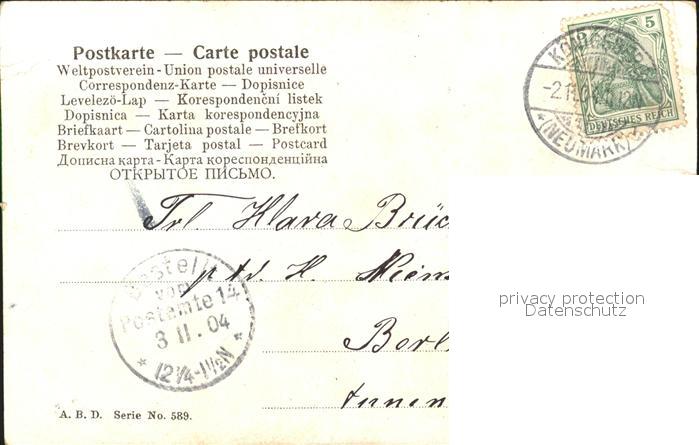 Postkarte — Carte postale
Weltpostverein - Union postale universelle
Correspondenz-Karte — Dopisnice
Levelező-Lap — Korespondenční listek
Dopisnica — Karta korespondencyjna
Briefkaart — Cartolina postale — Brefkort
Brevkort — Tarjeta postal — Postcard
Дописна карта - Карта кореспонденційна
ОТКРЫТОЕ ПИСЬМО.
5
DEUTSCHES REICH
(NEUMARK)
Frl. Klara Brüc
H.
Berl
Bestellt
vom
Postamte 14
3 11. 04
* 12¼-1½N *
privacy protection
Datenschutz
A. B. D. Serie No. 589.